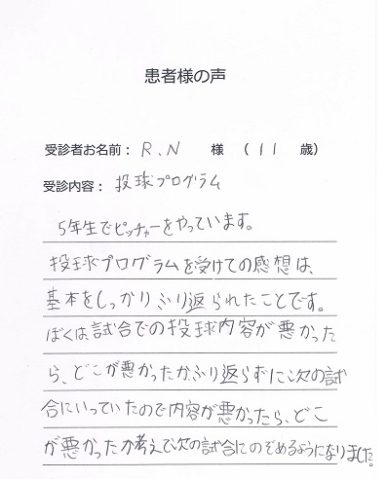 患者様の声
受診者お名前： R.N 様 （ 11 歳）
受診内容： 投球プログラム
5年生でピッチャーをやっています。
投球プログラムを受けての感想は、
基本をしっかりふり返られたことです。
ぼくは試合での投球内容が悪かった
ら、どこが悪かったかふり返らずに次の試
合にいっていたので内容が悪かったら、どこ
が悪かったか考えて次の試合にのぞめるようになりました。